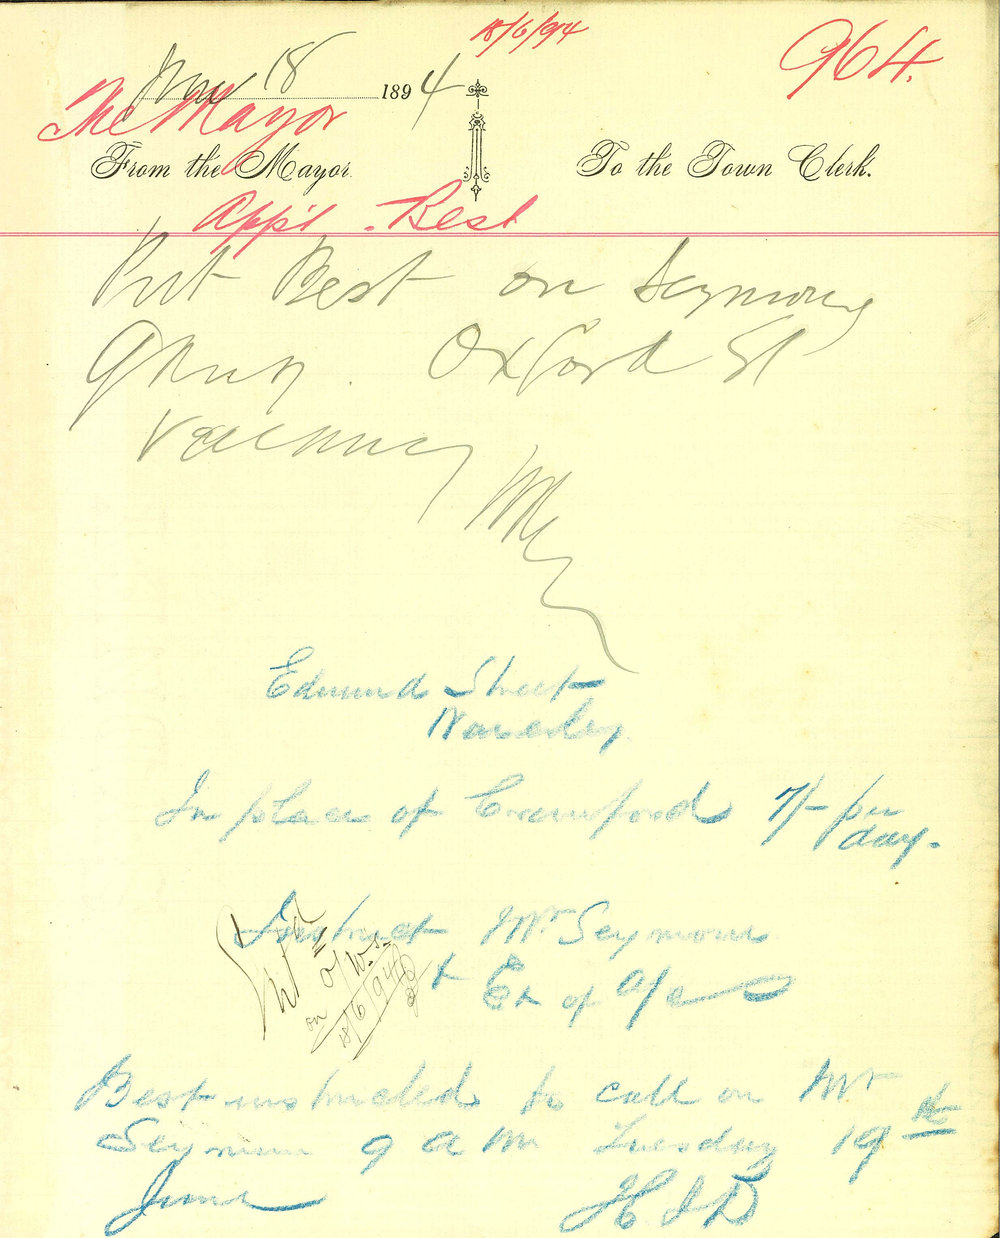 18/6/94
964.
June 18 1894
The Mayor
From the Mayor.
To the Town Clerk.
App't. Best
Put Best on Seymours
Gang. Oxford St
Vacancy
Edmund Street
Waverley
In place of Crawford 7/- per
day.
Instruct Mr Seymour
+ Ex of A/c
on
18/6/94
Best instructed to call on Mr
Seymour 9 AM Tuesday 19th
June